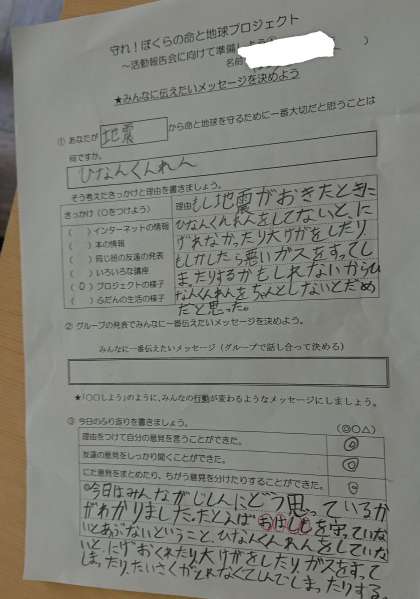 守れ！ぼくらの命と地球プロジェクト
～活動報告会に向けて準備しよう①
名前 )
★みんなに伝えたいメッセージを決めよう
① あなたが 地震 から命と地球を守るために一番大切だと思うことは
何ですか。
ひなんくんれん
そう考えたきっかけと理由を書きましょう。
きっかけ（○をつけよう）
（ ）インターネットの情報
（ ）本の情報
（ ）同じ班の友達の発表
（ ）いろいろな講座
（○）プロジェクトの様子
（ ）ふだんの生活の様子
理由 もし地震がおきたときに
ひなんくんれんをしてないと、に
げれなかったり大けがをしたり
もしかしたら悪いガスをすってし
まったりするかもしれないからひ
なんくんれんをちゃんとしないとだめ
だと思った。
② グループの発表でみんなに一番伝えたいメッセージを決めよう。
みんなに一番伝えたいメッセージ（グループで話し合って決める）
★「○○しよう」のように、みんなの行動が変わるようなメッセージにしましょう。
③ 今日のふり返りを書きましょう。 （◎○△）
理由をつけて自分の意見を言うことができた。 ◎
友達の意見をしっかり聞くことができた。 ◎
にた意見をまとめたり、ちがう意見を分けたりすることができた。
◎今日はみんながじしんにどう思っているか
がわかりました。たとえば おはしもを守っていな
いとあぶないということ、ひなんくんれんをしていな
いと、にげおくれたり大けがをしたりガスをすって
しまったり、たいさくがとれなくてしんでしまったりする。